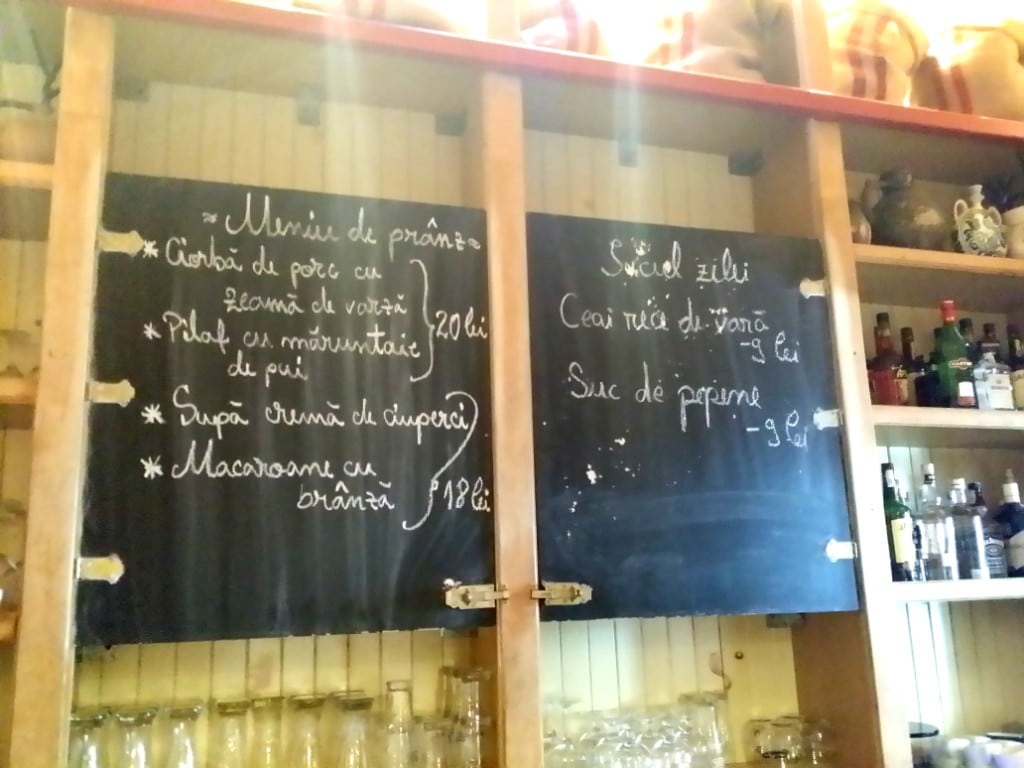 ≈ Meniu de prânz ≈
* Ciorbă de porc cu
zeamă de varză
* Pilaf cu măruntaie
de pui
20 lei
* Supă cremă de ciuperci
* Macaroane cu
brânză
18 lei
Sucul zilei
Ceai rece de vară
- 9 lei
Suc de pepene
- 9 lei